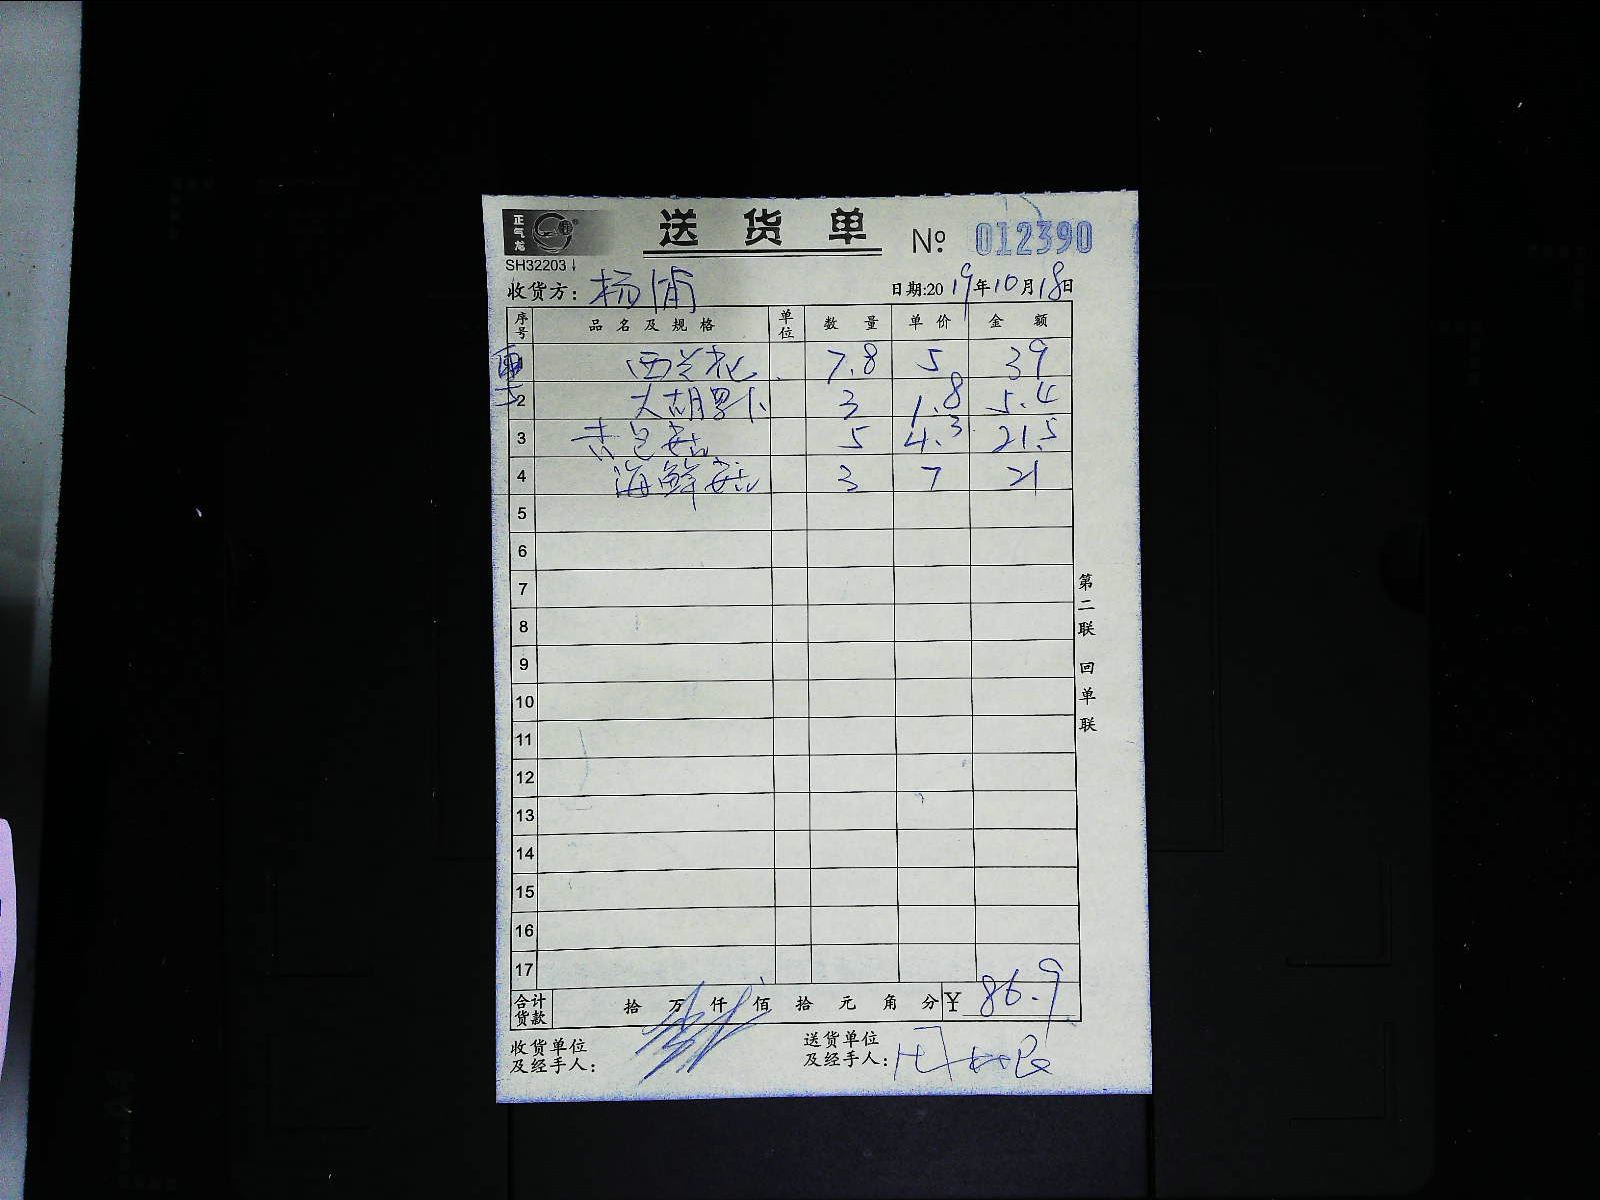 正气龙
送货单 № 012390
SH32203
收货方: 杨浦 日期:2019年10月18日
序号 品名及规格 单位 数量 单价 金额
西兰花 7.8 5 39
2 大胡罗卜 3 1.8 5.4
3 杏包菇 5 4.3 21.5
4 海鲜菇 3 7 21
5
6
7
8
9
10
11
12
13
14
15
16
17
第二联 回单联
合计货款 拾万仟佰拾元角分 ¥ 86.9
收货单位及经手人:
送货单位及经手人: